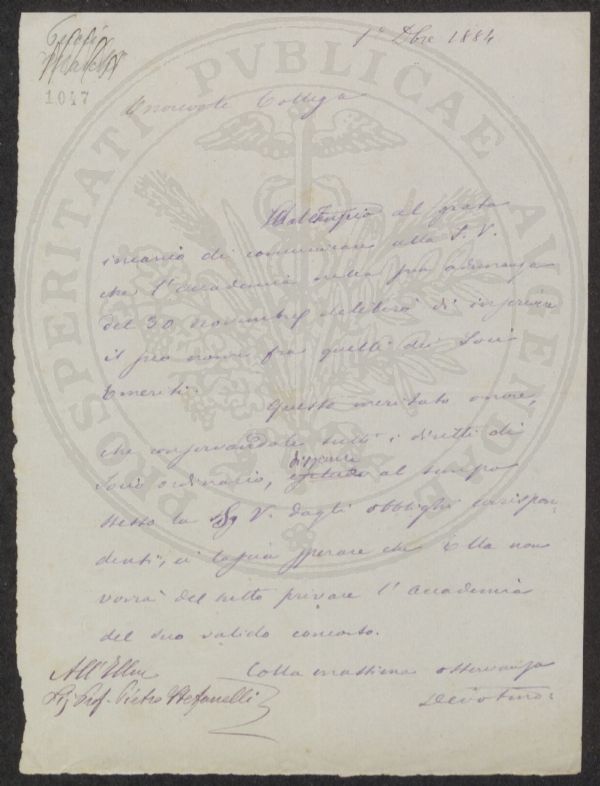 1° Dbre 1884
1047
PROSPERITATI PVBLICAE AVGENDAE
Onorevole Collega
al grato
incarico di comunicare alla S. V.
che l'Accademia nella sua adunanza
del 30 Novembre deliberò di inscrivere
il suo nome fra quelli dei Soci
Emeriti. Questo meritato onore,
che conservandole tutti i diritti di
dispensa
Socio ordinario, al tempo
stesso la S. V. dagli obblighi corrispon-
denti, ci lascia sperare che Ella non
vorrà del tutto privare l'Accademia
del suo valido concorso.
Colla massima osservanza
Devotmo:
All'Illmo
Sig Prof. Pietro Stefanelli